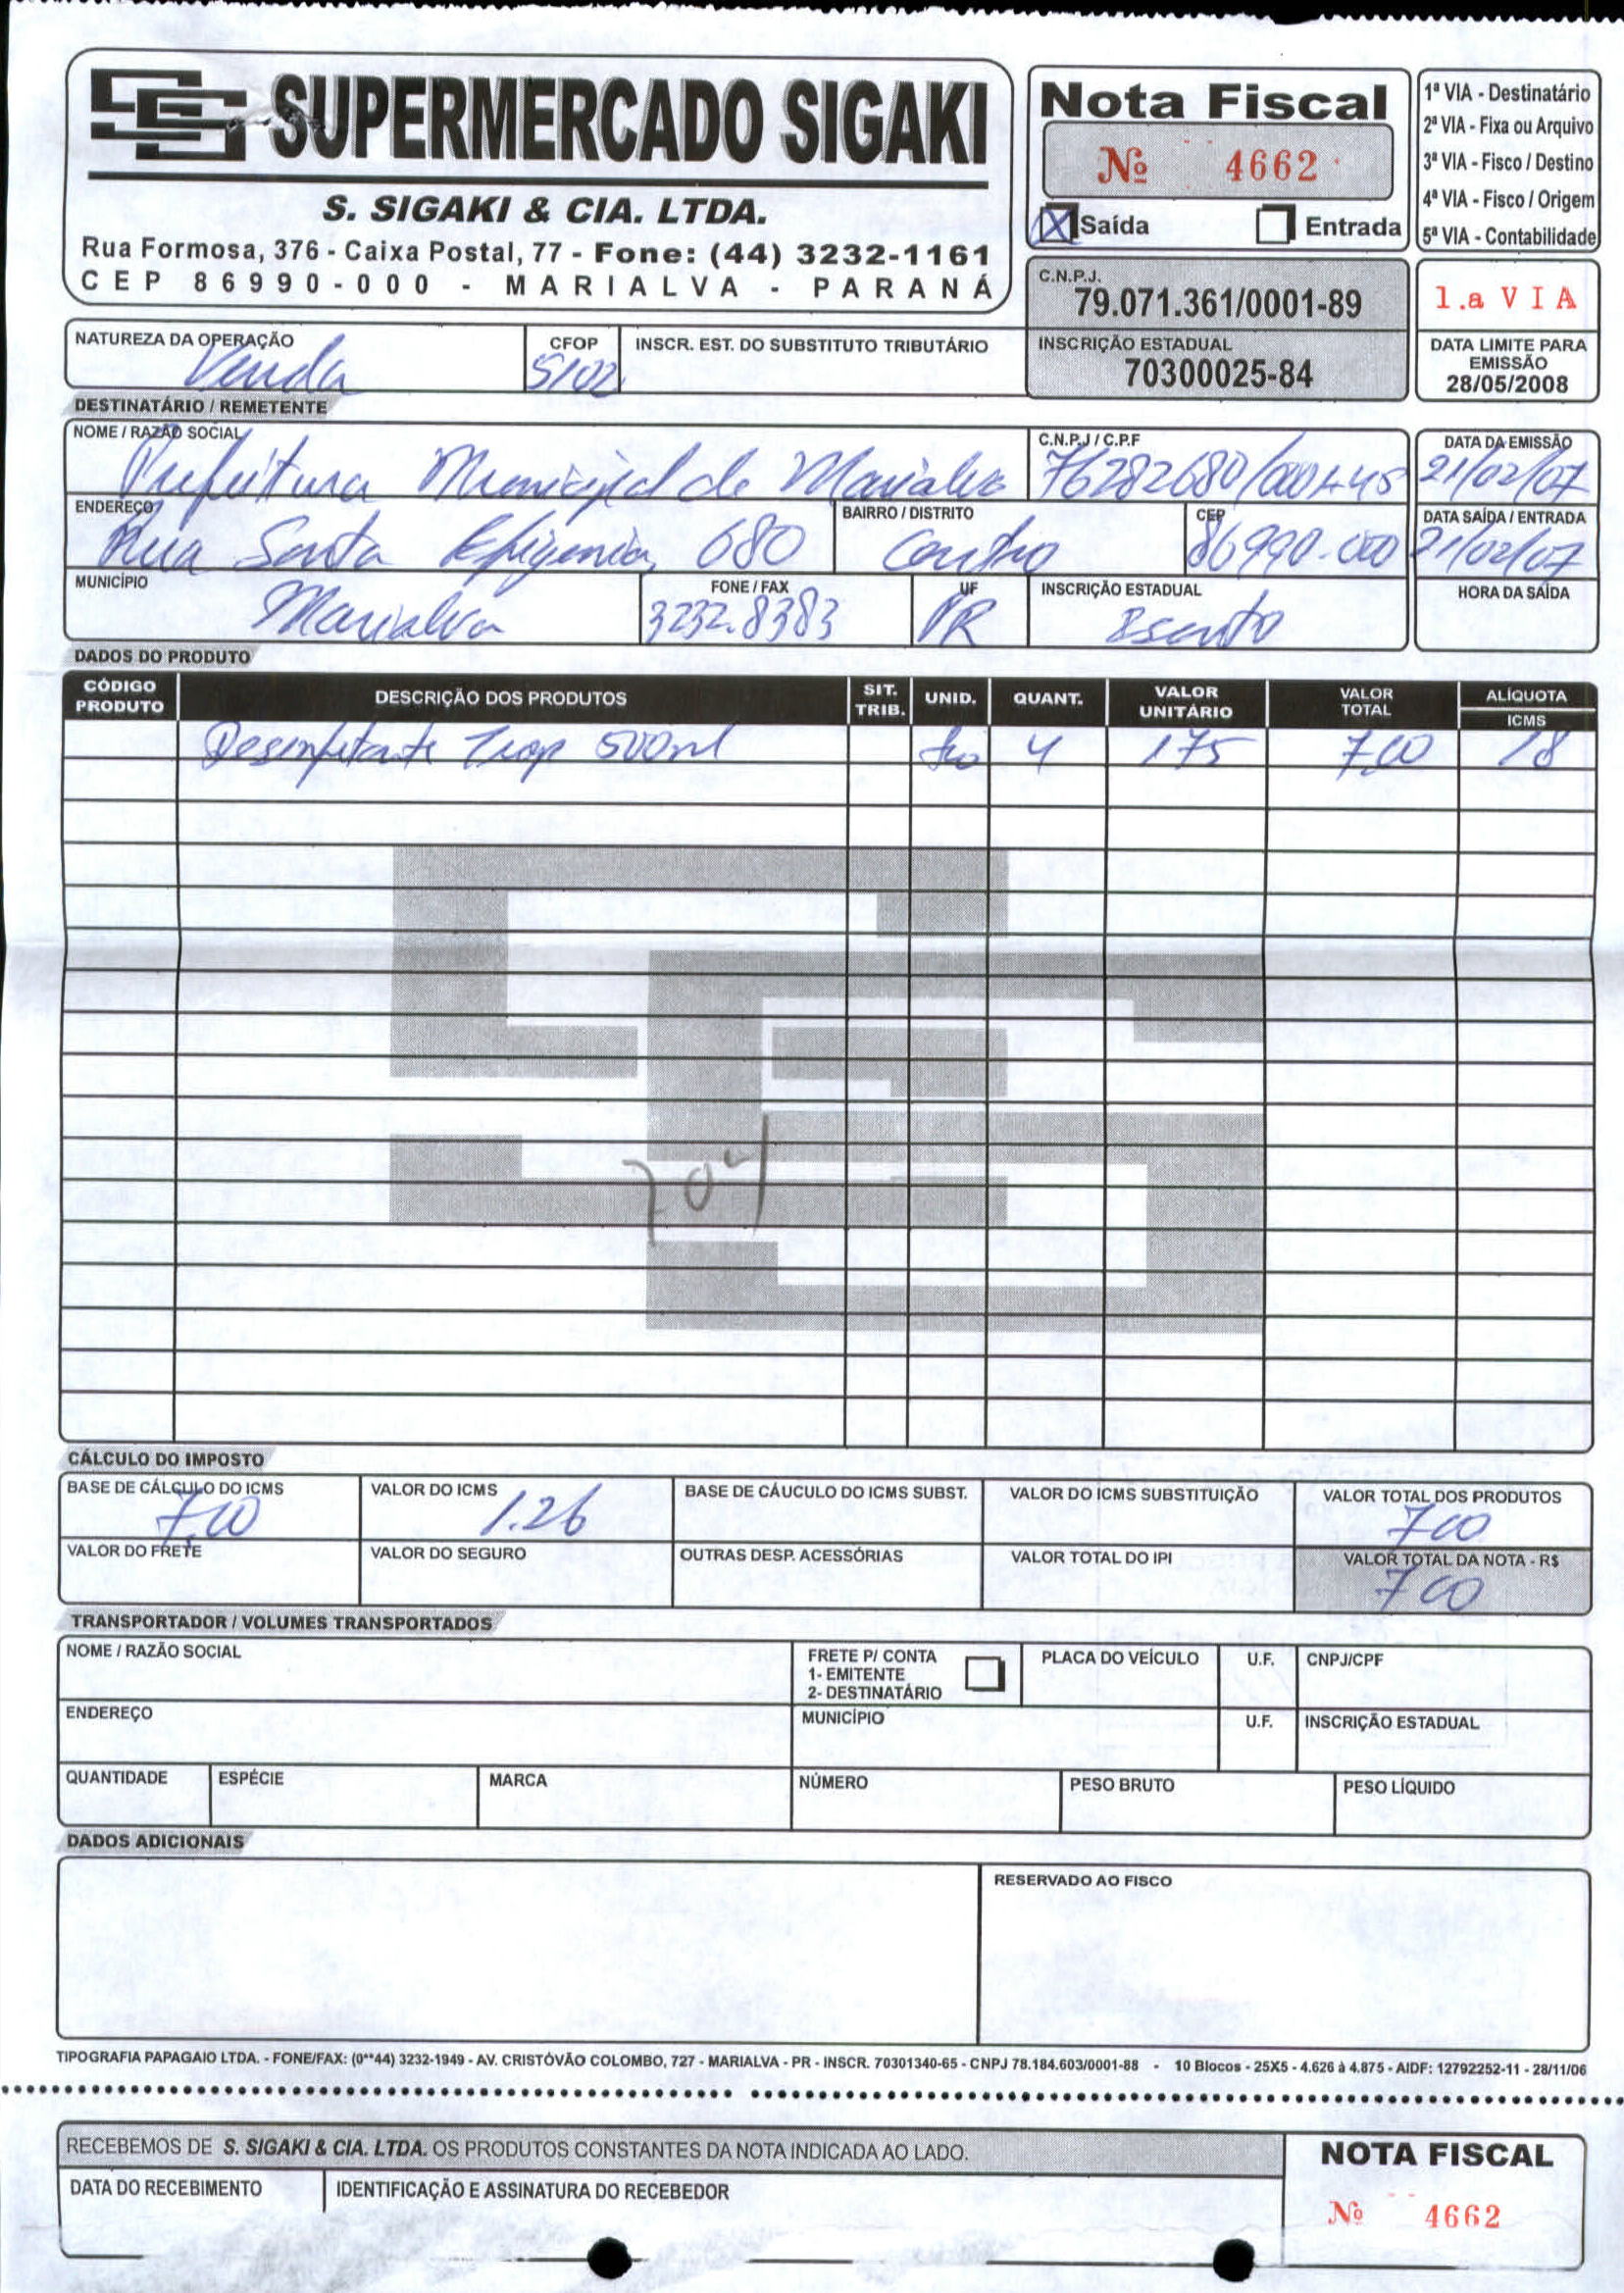 SUPERMERCADO SIGAKI
S. SIGAKI & CIA. LTDA.
Rua Formosa, 376 - Caixa Postal, 77 - Fone: (44) 3232-1161
CEP 86990-000 - MARIALVA - PARANÁ
Nota Fiscal
Nº 4662
X Saída Entrada
1ª VIA - Destinatário
2ª VIA - Fixa ou Arquivo
3ª VIA - Fisco / Destino
4ª VIA - Fisco / Origem
5ª VIA - Contabilidade
C.N.P.J.
79.071.361/0001-89
1.a VIA
NATUREZA DA OPERAÇÃO CFOP INSCR. EST. DO SUBSTITUTO TRIBUTÁRIO
Venda 5102
INSCRIÇÃO ESTADUAL
70300025-84
DATA LIMITE PARA
EMISSÃO
28/05/2008
DESTINATÁRIO / REMETENTE
NOME / RAZÃO SOCIAL C.N.P.J / C.P.F DATA DA EMISSÃO
Prefeitura Municipal de Marialva 76282680/0001-45 21/02/07
ENDEREÇO BAIRRO / DISTRITO CEP DATA SAÍDA / ENTRADA
Rua Santa Efigenia, 680 Centro 86990-000 21/02/07
MUNICÍPIO FONE / FAX UF INSCRIÇÃO ESTADUAL HORA DA SAÍDA
Marialva 3232.8383 PR Isento
DADOS DO PRODUTO
CÓDIGO PRODUTO DESCRIÇÃO DOS PRODUTOS SIT. TRIB. UNID. QUANT. VALOR UNITÁRIO VALOR TOTAL ALÍQUOTA ICMS
Desinfetante 500ml 4 175 7,00 18
CÁLCULO DO IMPOSTO
BASE DE CÁLCULO DO ICMS VALOR DO ICMS BASE DE CÁUCULO DO ICMS SUBST. VALOR DO ICMS SUBSTITUIÇÃO VALOR TOTAL DOS PRODUTOS
7,00 1.26 700
VALOR DO FRETE VALOR DO SEGURO OUTRAS DESP. ACESSÓRIAS VALOR TOTAL DO IPI VALOR TOTAL DA NOTA - R$
700
TRANSPORTADOR / VOLUMES TRANSPORTADOS
NOME / RAZÃO SOCIAL FRETE P/ CONTA PLACA DO VEÍCULO U.F. CNPJ/CPF
1- EMITENTE
2- DESTINATÁRIO
ENDEREÇO MUNICÍPIO U.F. INSCRIÇÃO ESTADUAL
QUANTIDADE ESPÉCIE MARCA NÚMERO PESO BRUTO PESO LÍQUIDO
DADOS ADICIONAIS
RESERVADO AO FISCO
TIPOGRAFIA PAPAGAIO LTDA. - FONE/FAX: (0**44) 3232-1949 - AV. CRISTÓVÃO COLOMBO, 727 - MARIALVA - PR - INSCR. 70301340-65 - CNPJ 78.184.603/0001-88 - 10 Blocos - 25X5 - 4.626 à 4.875 - AIDF: 12792252-11 - 28/11/06
RECEBEMOS DE S. SIGAKI & CIA. LTDA. OS PRODUTOS CONSTANTES DA NOTA INDICADA AO LADO.
DATA DO RECEBIMENTO IDENTIFICAÇÃO E ASSINATURA DO RECEBEDOR
NOTA FISCAL
Nº 4662